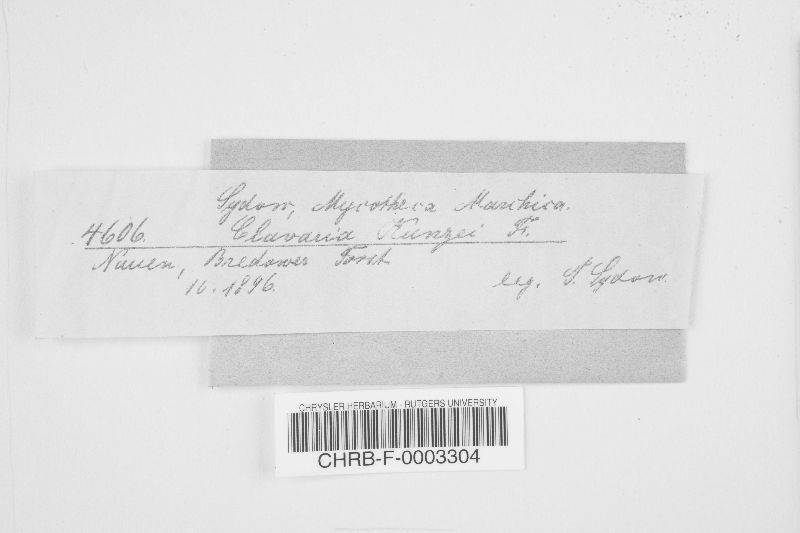 Sydow, Mycotheca Marchica.
4606. Clavaria Kunzei Fr.
Nauen, Bredower Forst
10. 1896.
leg. P. Sydow.
CHRYSLER HERBARIUM - RUTGERS UNIVERSITY
CHRB-F-0003304